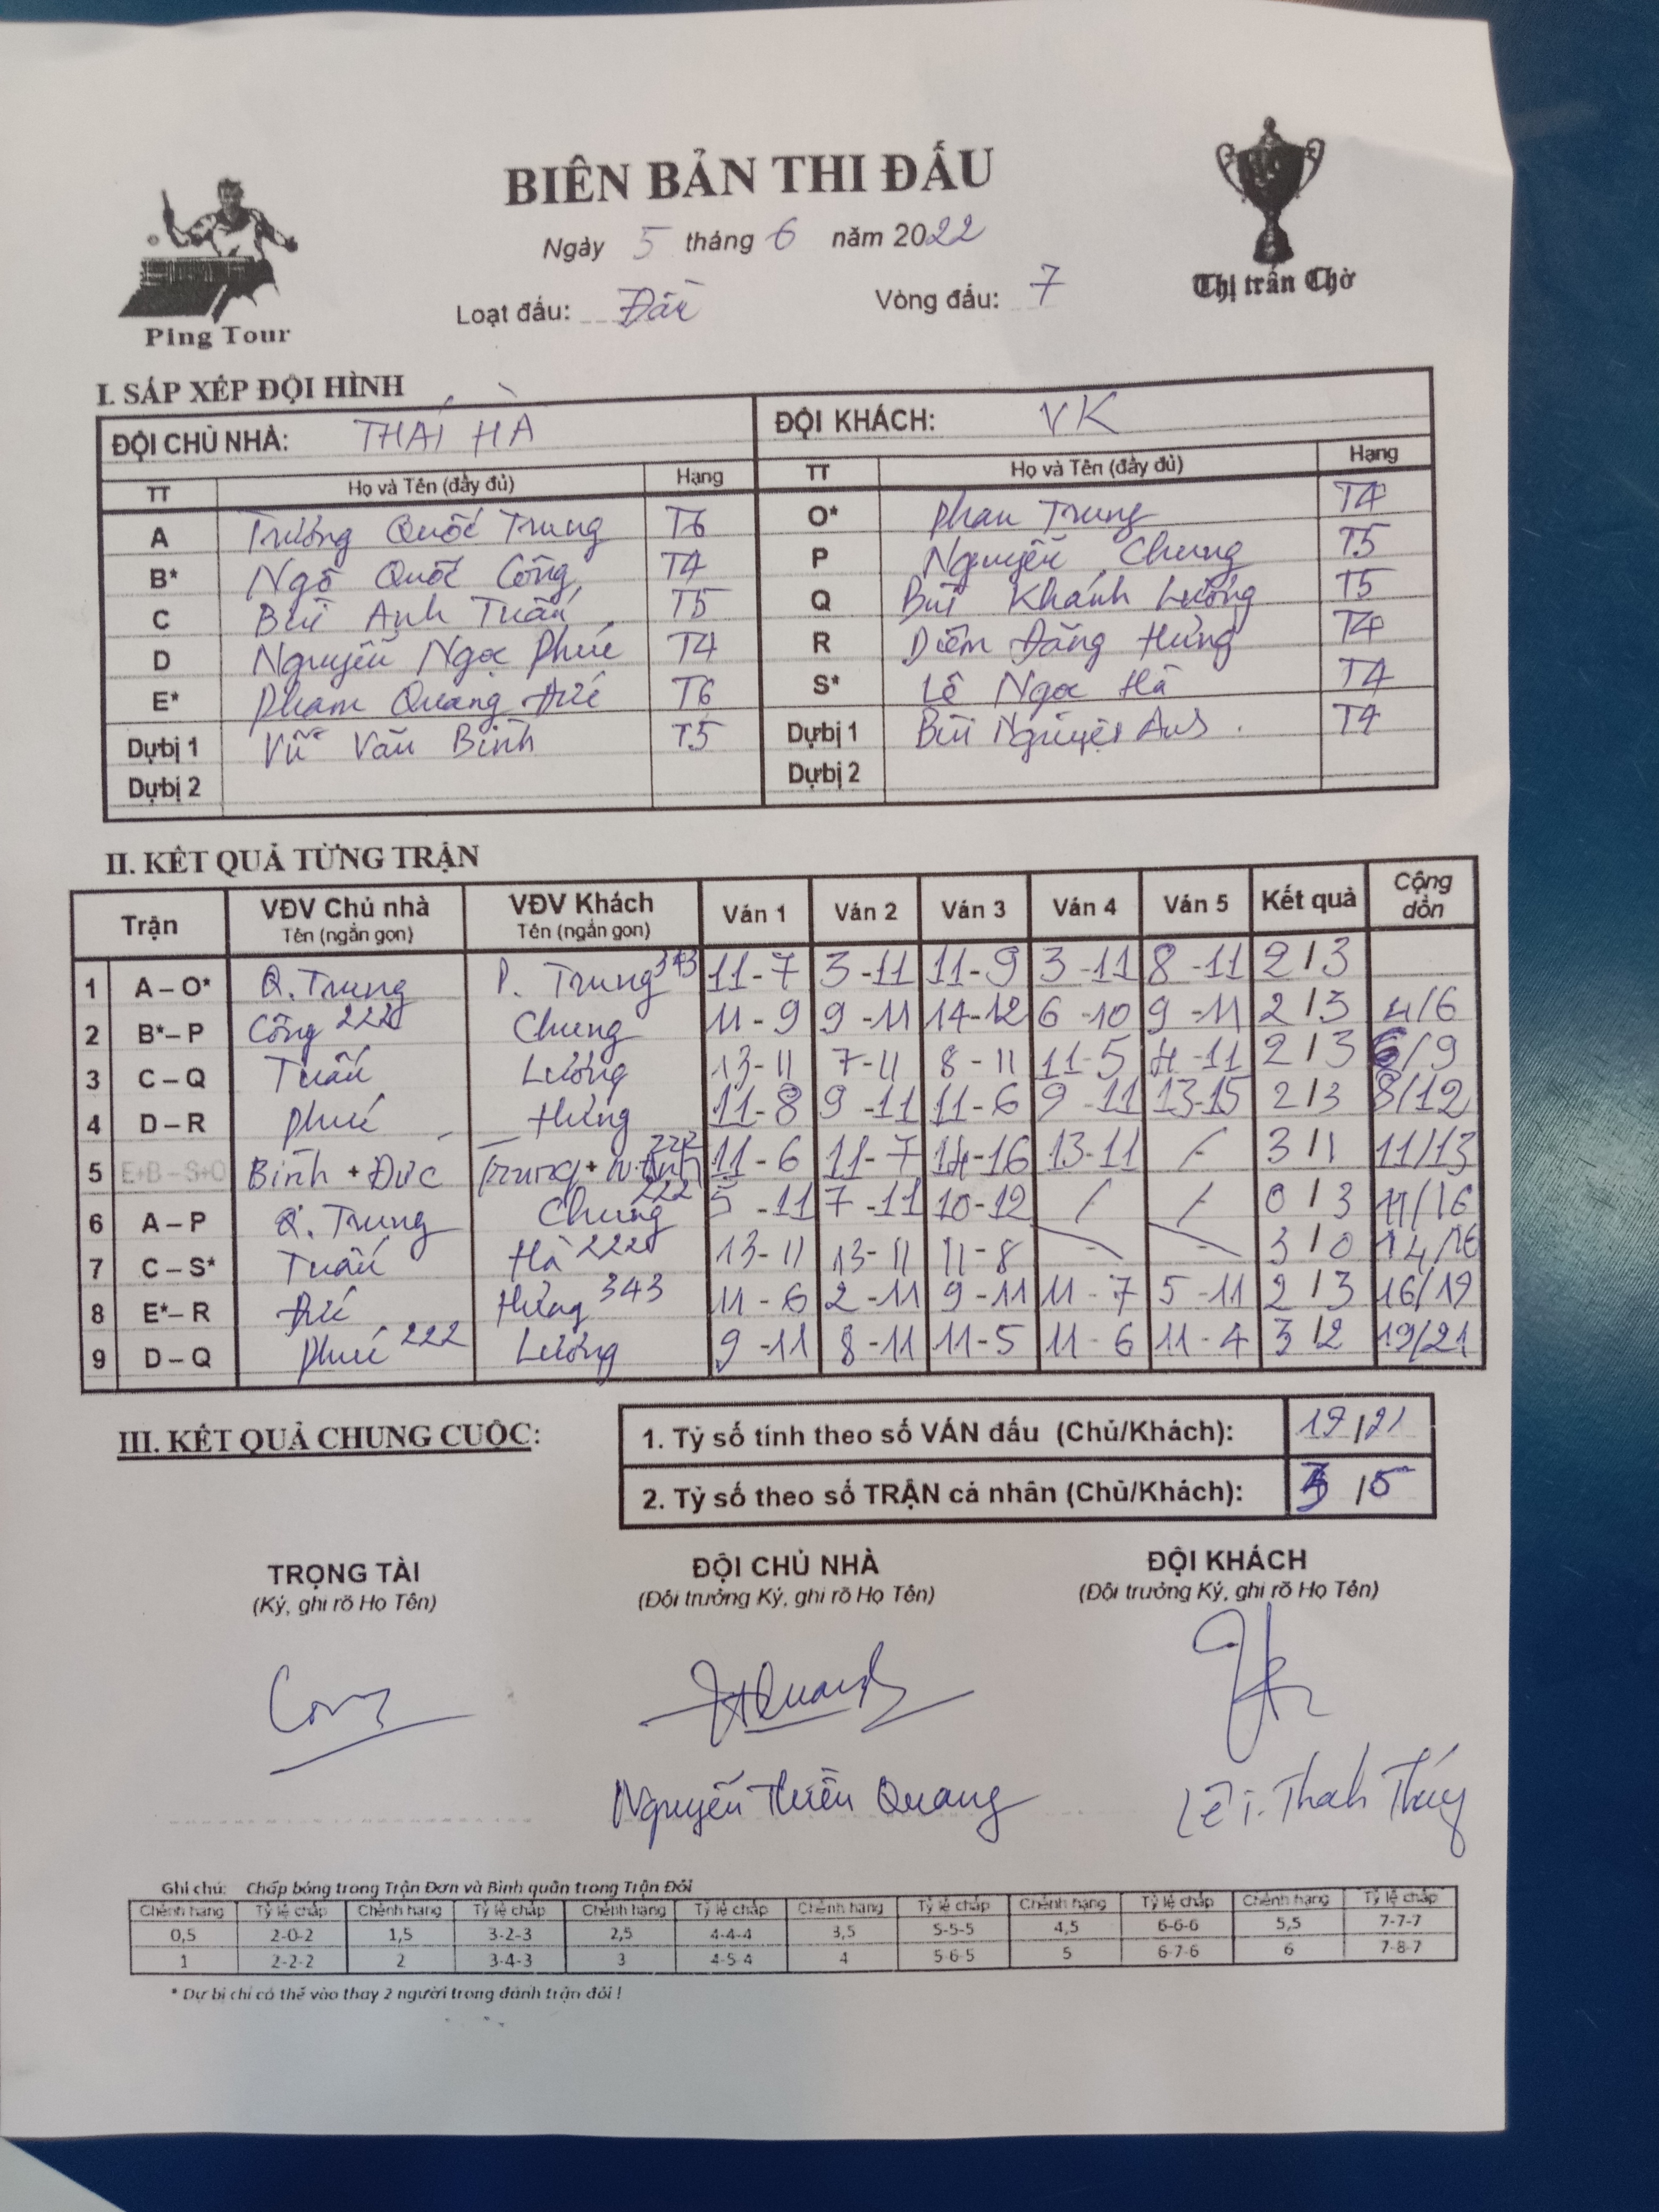 BIÊN BẢN THI ĐẤU
Ngày 5 tháng 6 năm 2022
Loạt đấu: Vòng đấu: 7
Ping Tour
Thị trấn Chờ
I. SẮP XẾP ĐỘI HÌNH
ĐỘI CHỦ NHÀ: THÁI HÀ ĐỘI KHÁCH: VK
TT Họ và Tên (đầy đủ) Hạng TT Họ và Tên (đầy đủ) Hạng
A Trương Quốc Trung T6 O* Phan Trung T4
B* Ngô Quốc Công T4 P Nguyễn Chung T5
C Bùi Anh Tuấn T5 Q Bùi Khánh Lương T5
D Nguyễn Ngọc Phúc T4 R Diêm Đăng Hưng T4
E* Phạm Quang Đức T6 S* Lê Ngọc Hà T4
Dự bị 1 Vũ Văn Bình T5 Dự bị 1 Bùi Nguyệt Anh T4
Dự bị 2 Dự bị 2
II. KẾT QUẢ TỪNG TRẬN
Trận VĐV Chủ nhà Tên (ngắn gọn) VĐV Khách Tên (ngắn gọn) Ván 1 Ván 2 Ván 3 Ván 4 Ván 5 Kết quả Cộng dồn
1 A – O* Q. Trung P. Trung 343 11-7 3-11 11-9 3-11 8-11 2/3
2 B* – P Công 222 Chung 11-9 9-11 14-12 6-10 9-11 2/3 4/6
3 C – Q Tuấn Lương 13-11 7-11 8-11 11-5 4-11 2/3 6/9
4 D – R Phúc Hưng 11-8 9-11 11-6 9-11 13-15 2/3 8/12
5 E+B – S+O Bình + Đức Trung + N. Anh 222 11-6 11-7 14-16 13-11 / 3/1 11/13
6 A – P Q. Trung Chung 222 5-11 7-11 10-12 / / 0/3 11/16
7 C – S* Tuấn Hà 222 13-11 13-11 11-8 - - 3/0 14/16
8 E* – R Đức Hưng 343 11-6 2-11 9-11 11-7 5-11 2/3 16/19
9 D – Q Phúc 222 Lương 9-11 8-11 11-5 11-6 11-4 3/2 19/21
III. KẾT QUẢ CHUNG CUỘC:
1. Tỷ số tính theo số VÁN đấu (Chủ/Khách): 19/21
2. Tỷ số theo số TRẬN cá nhân (Chủ/Khách): /5
TRỌNG TÀI ĐỘI CHỦ NHÀ ĐỘI KHÁCH
(Ký, ghi rõ Họ Tên) (Đội trưởng Ký, ghi rõ Họ Tên) (Đội trưởng Ký, ghi rõ Họ Tên)
Quang
Nguyễn Thiên Quang Lê T. Thanh Thúy
Ghi chú: Chấp bóng trong Trận Đơn và Bình quân trong Trận Đôi
Chênh hạng Tỷ lệ chấp Chênh hạng Tỷ lệ chấp Chênh hạng Tỷ lệ chấp Chênh hạng Tỷ lệ chấp Chênh hạng Tỷ lệ chấp Chênh hạng Tỷ lệ chấp
0,5 2-0-2 1,5 3-2-3 2,5 4-4-4 3,5 5-5-5 4,5 6-6-6 5,5 7-7-7
1 2-2-2 2 3-4-3 3 4-5-4 4 5-6-5 5 6-7-6 6 7-8-7
* Dự bị chỉ có thể vào thay 2 người trong đánh trận đôi !